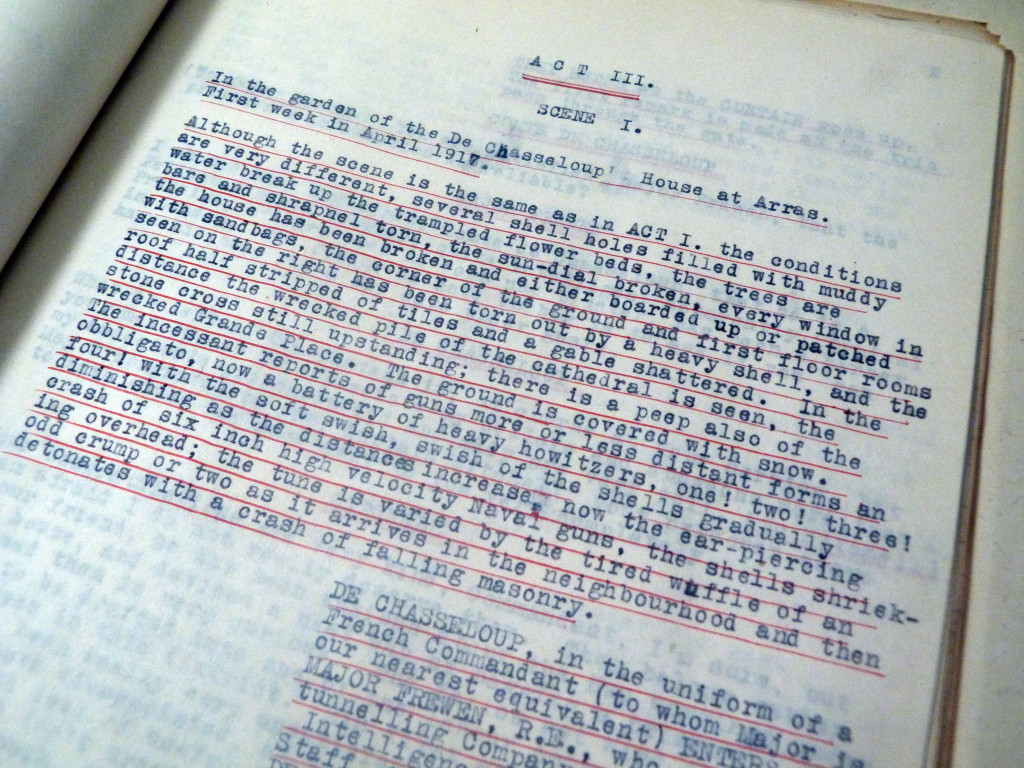 ACT III.
SCENE I.
In the garden of the De Chasseloup' House at Arras.
First week in April 1917.
Although the scene is the same as in ACT I. the conditions
are very different, several shell holes filled with muddy
water break up the trampled flower beds, the trees are
bare and shrapnel torn, the sun-dial broken, every window in
the house has been broken and either boarded up or patched
with sandbags, the corner of the ground and first floor rooms
seen on the right has been torn out by a heavy shell, and the
roof half stripped of tiles and a gable shattered. In the
distance the wrecked pile of the cathedral is seen, the
stone cross still upstanding; there is a peep also of the
wrecked Grande Place. The ground is covered with snow.
The incessant reports of guns more or less distant forms an
obbligato, now a battery of heavy howitzers, one! two! three!
four! with the soft swish, swish of the shells gradually
diminishing as the distances increase, now the ear-piercing
crash of six inch high velocity Naval guns, the shells shriek-
ing overhead; the tune is varied by the tired wuffle of an
odd crump or two as it arrives in the neighbourhood and then
detonates with a crash of falling masonry.
DE CHASSELOUP, in the uniform of a
French Commandant (to whom Major is
our nearest equivalent) ENTERS
MAJOR FREWEN, R.E., who
tunnelling Company
Intelligence
Staff